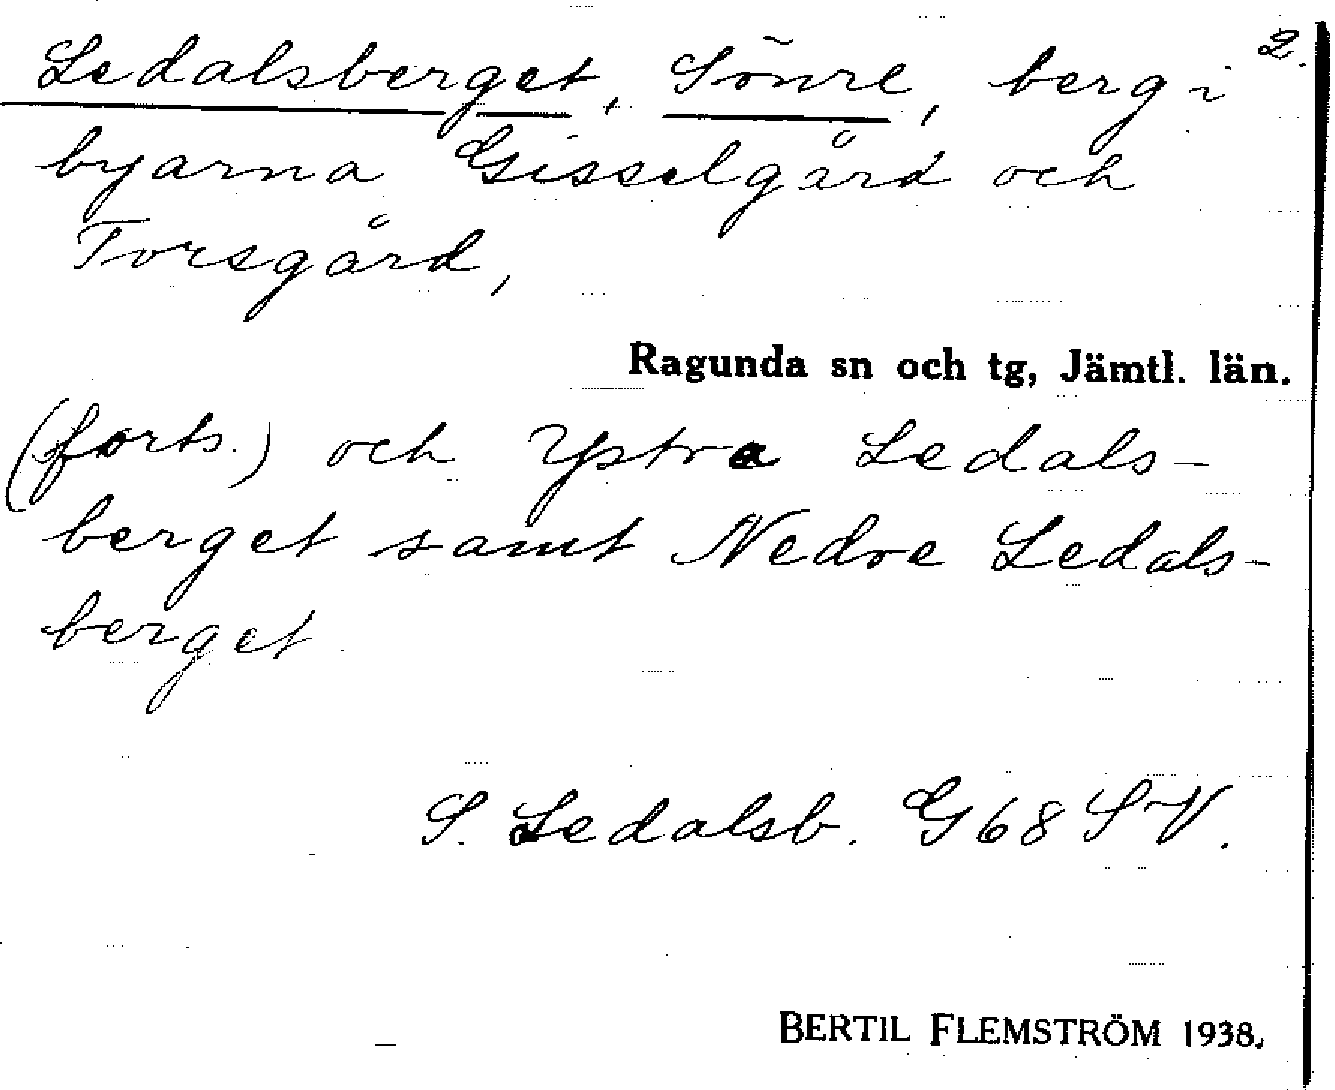 2.
Ledalsberget, Sönre, berg i
byarna Gisselgård och
Torsgård,
Ragunda sn och tg, Jämtl. län.
(forts.) och Ystra Ledals-
berget samt Nedre Ledals-
berget
S. Ledalsb. G68SV.
BERTIL FLEMSTRÖM 1938.